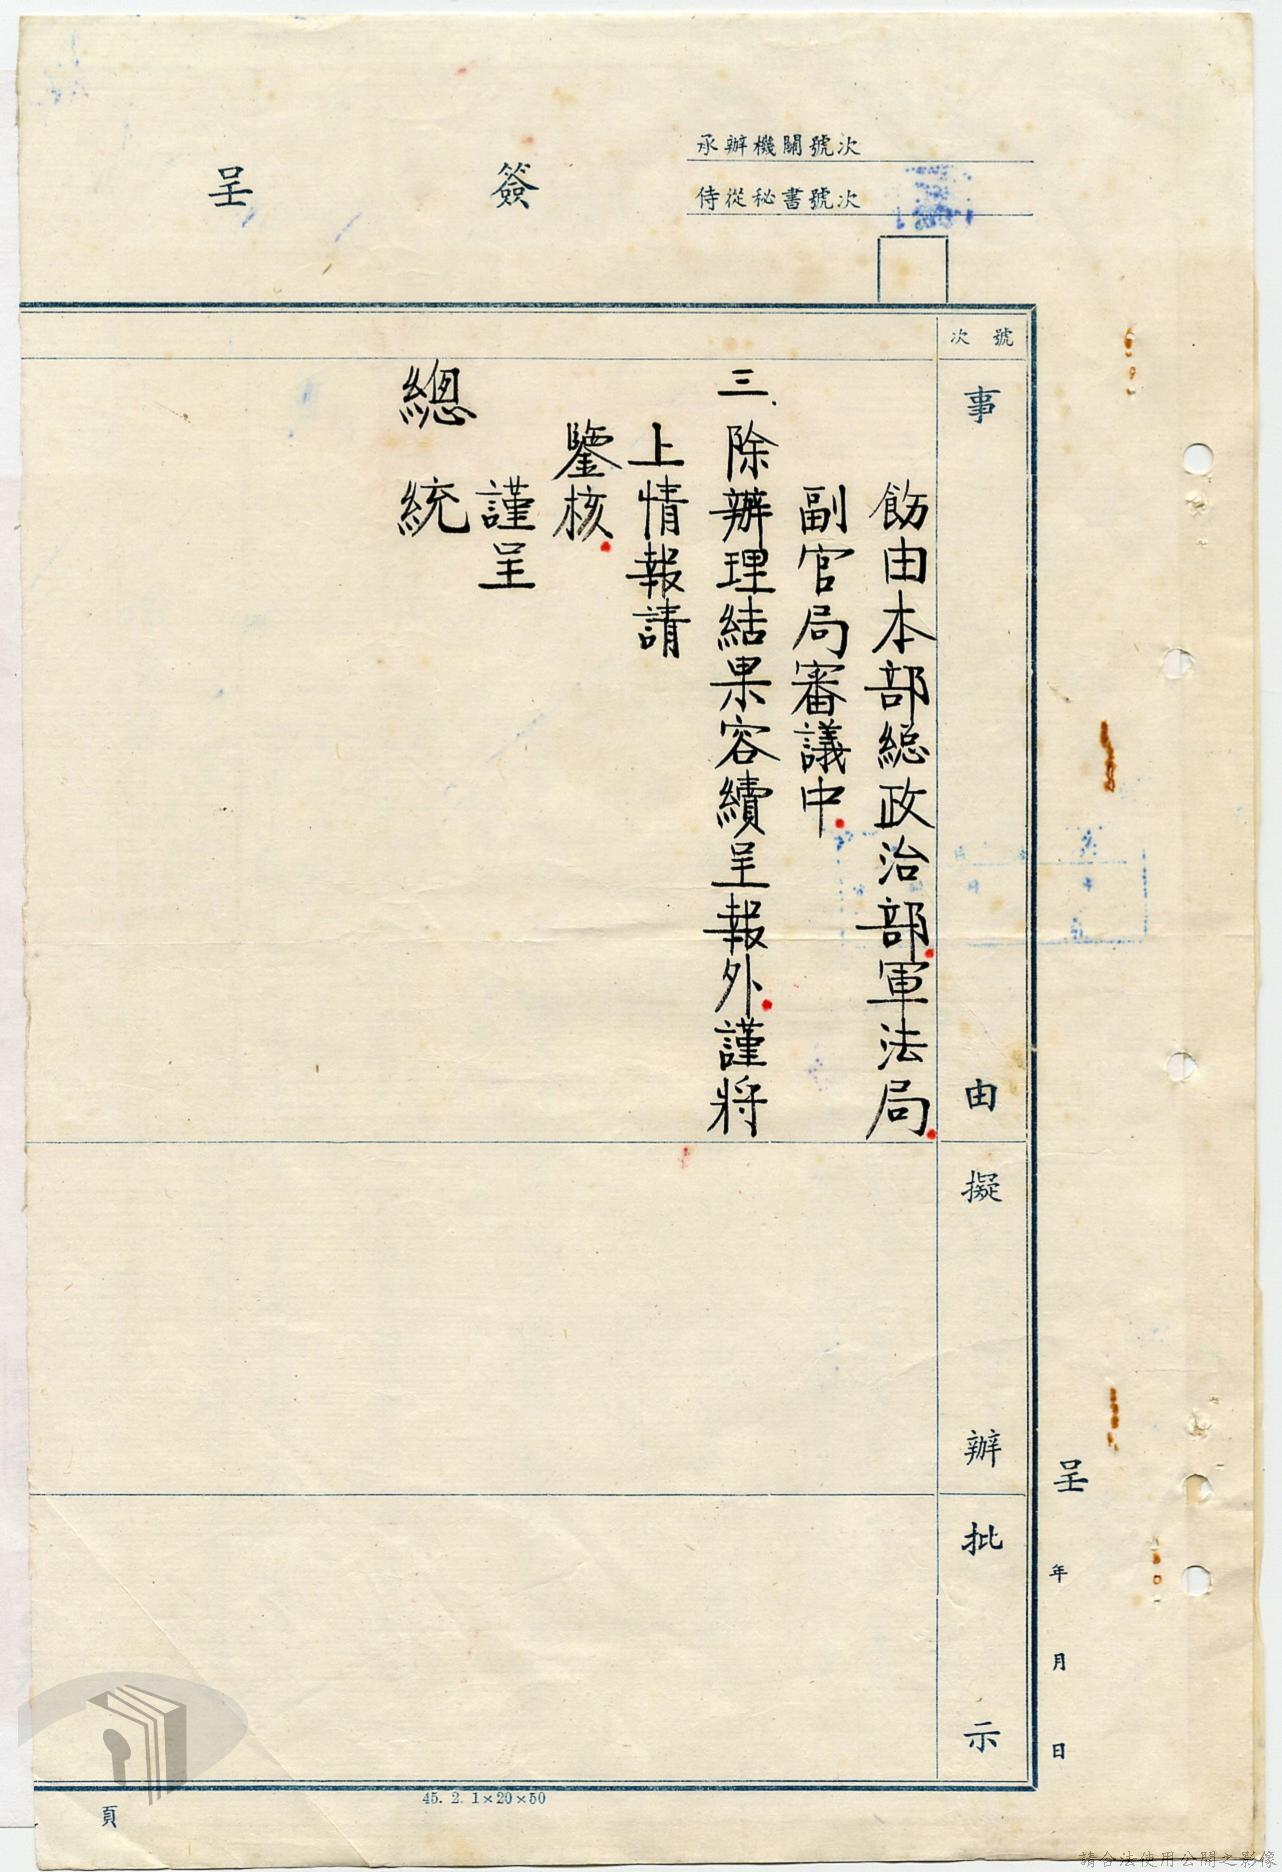 承辦機關號次
侍從秘書號次
簽呈
號次
事由
擬辦
批示
呈
年月日
飭由本部總政治部軍法局
副官局審議中
三、除辦理結果容續呈報外謹將
上情報請
鑒核
謹呈
總統
45. 2. 1×20×50
頁
請合法使用公開之影像